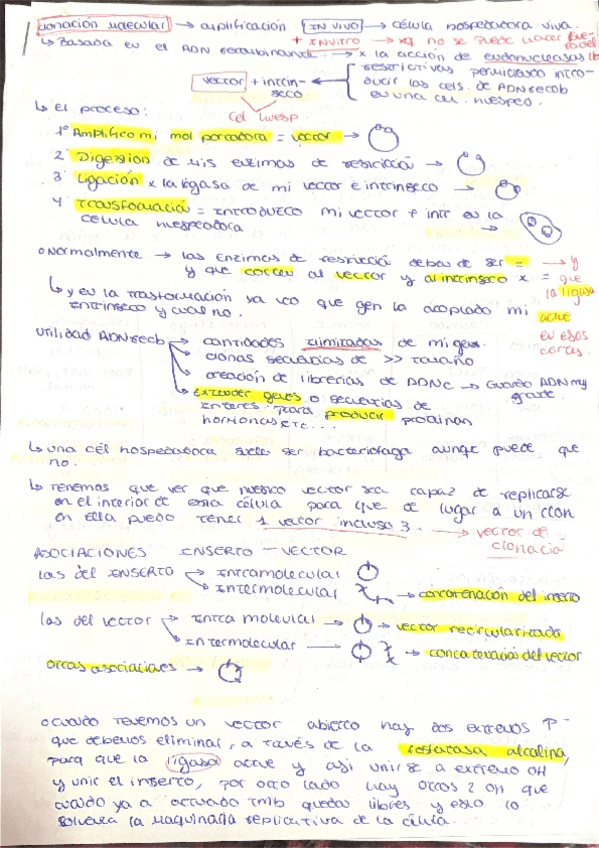 clonación molecular → amplificación IN VIVO → célula hospedadora viva.
↳ Basada en el ADN recombinante. + INVITRO → xq no se puede hacer fuera del
→ x la acción de endonucleasas
restrictivas permitiendo intro-
ducir las cels. de ADN recob
en una cel. huesped.
vector + intrín-
seco
cel huesp
↳ el proceso:
1º Amplifico mi mol portadora = vector →
2º Digestión de mis enzimas de restricción →
3º Ligación x la ligasa de mi vector e intrinseco →
4º Transformación = INTRODUZCO mi vector + intr en la
célula huespedadora
○ Normalmente → las enzimas de restricció deben de ser = → y
y que corten al vector y al intrinseco x = que
la ligasa
↳ y en la trasformación ya veo que gen la acoplado mi actue
intrinseco y cual no. en esos
cortes.
utilidad ADN recb → cantidades ilimitadas de mi gen.
→ clonas secuencias de >> tamaño
→ creación de librerias de ADNc → Guardo ADN my
grande.
→ Extender genes o secuencias de
interes para producir proteinas
hormonas etc...
↳ una cél hospedadora suele ser bacteriofaga aunque puede que
no.
↳ Tenemos que ver que nuestro vector sea capaz de replicarse
en el interior de esta célula para que de lugar a un clon
en ella puedo tener 1 vector incluso 3. → vector de
clonacia
ASOCIACIONES INSERTO - VECTOR
las del INSERTO → Intramolecular
→ Intermolecular → concatenación del inserto
las del vector → Intra molecular → vector recircularizado
→ Intermolecular → concatenación del vector
otras asociaciones →
○ cuando tenemos un vector abierto hay dos extremos P⁻
que debemos eliminar, a través de la fosfatasa alcalina,
para que la ligasa actue y asi unirse a extremo OH
y unir el inserto, por otro lado hay otros 2 OH que
cuando ya a actuado tmb quedan libres y eslo lo
solvera la maquinada replicativa de la célula.